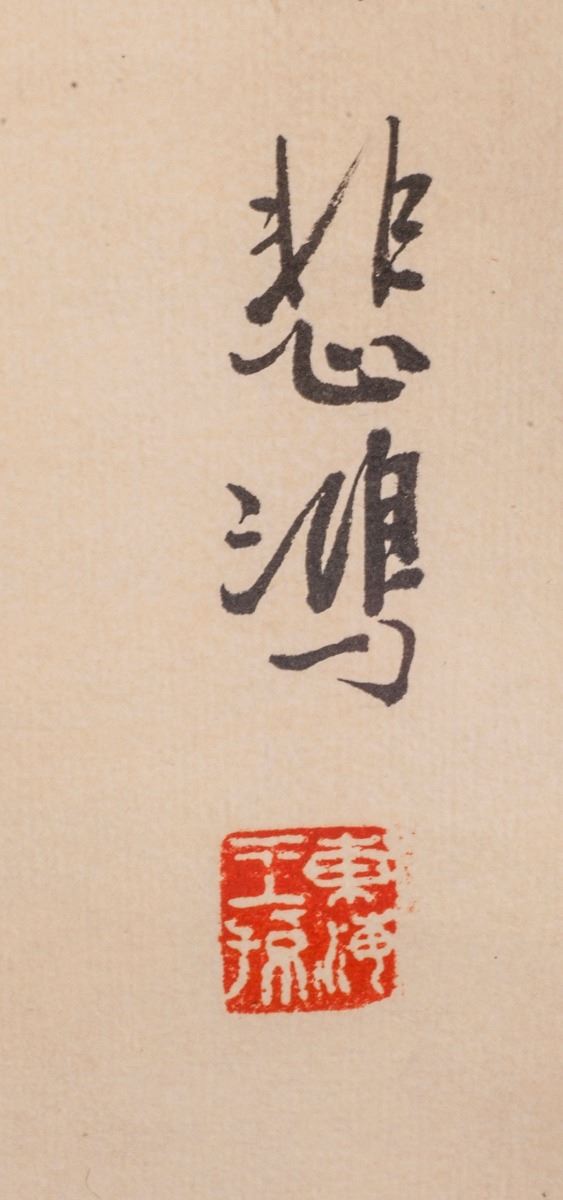 悲鴻
東海王孫